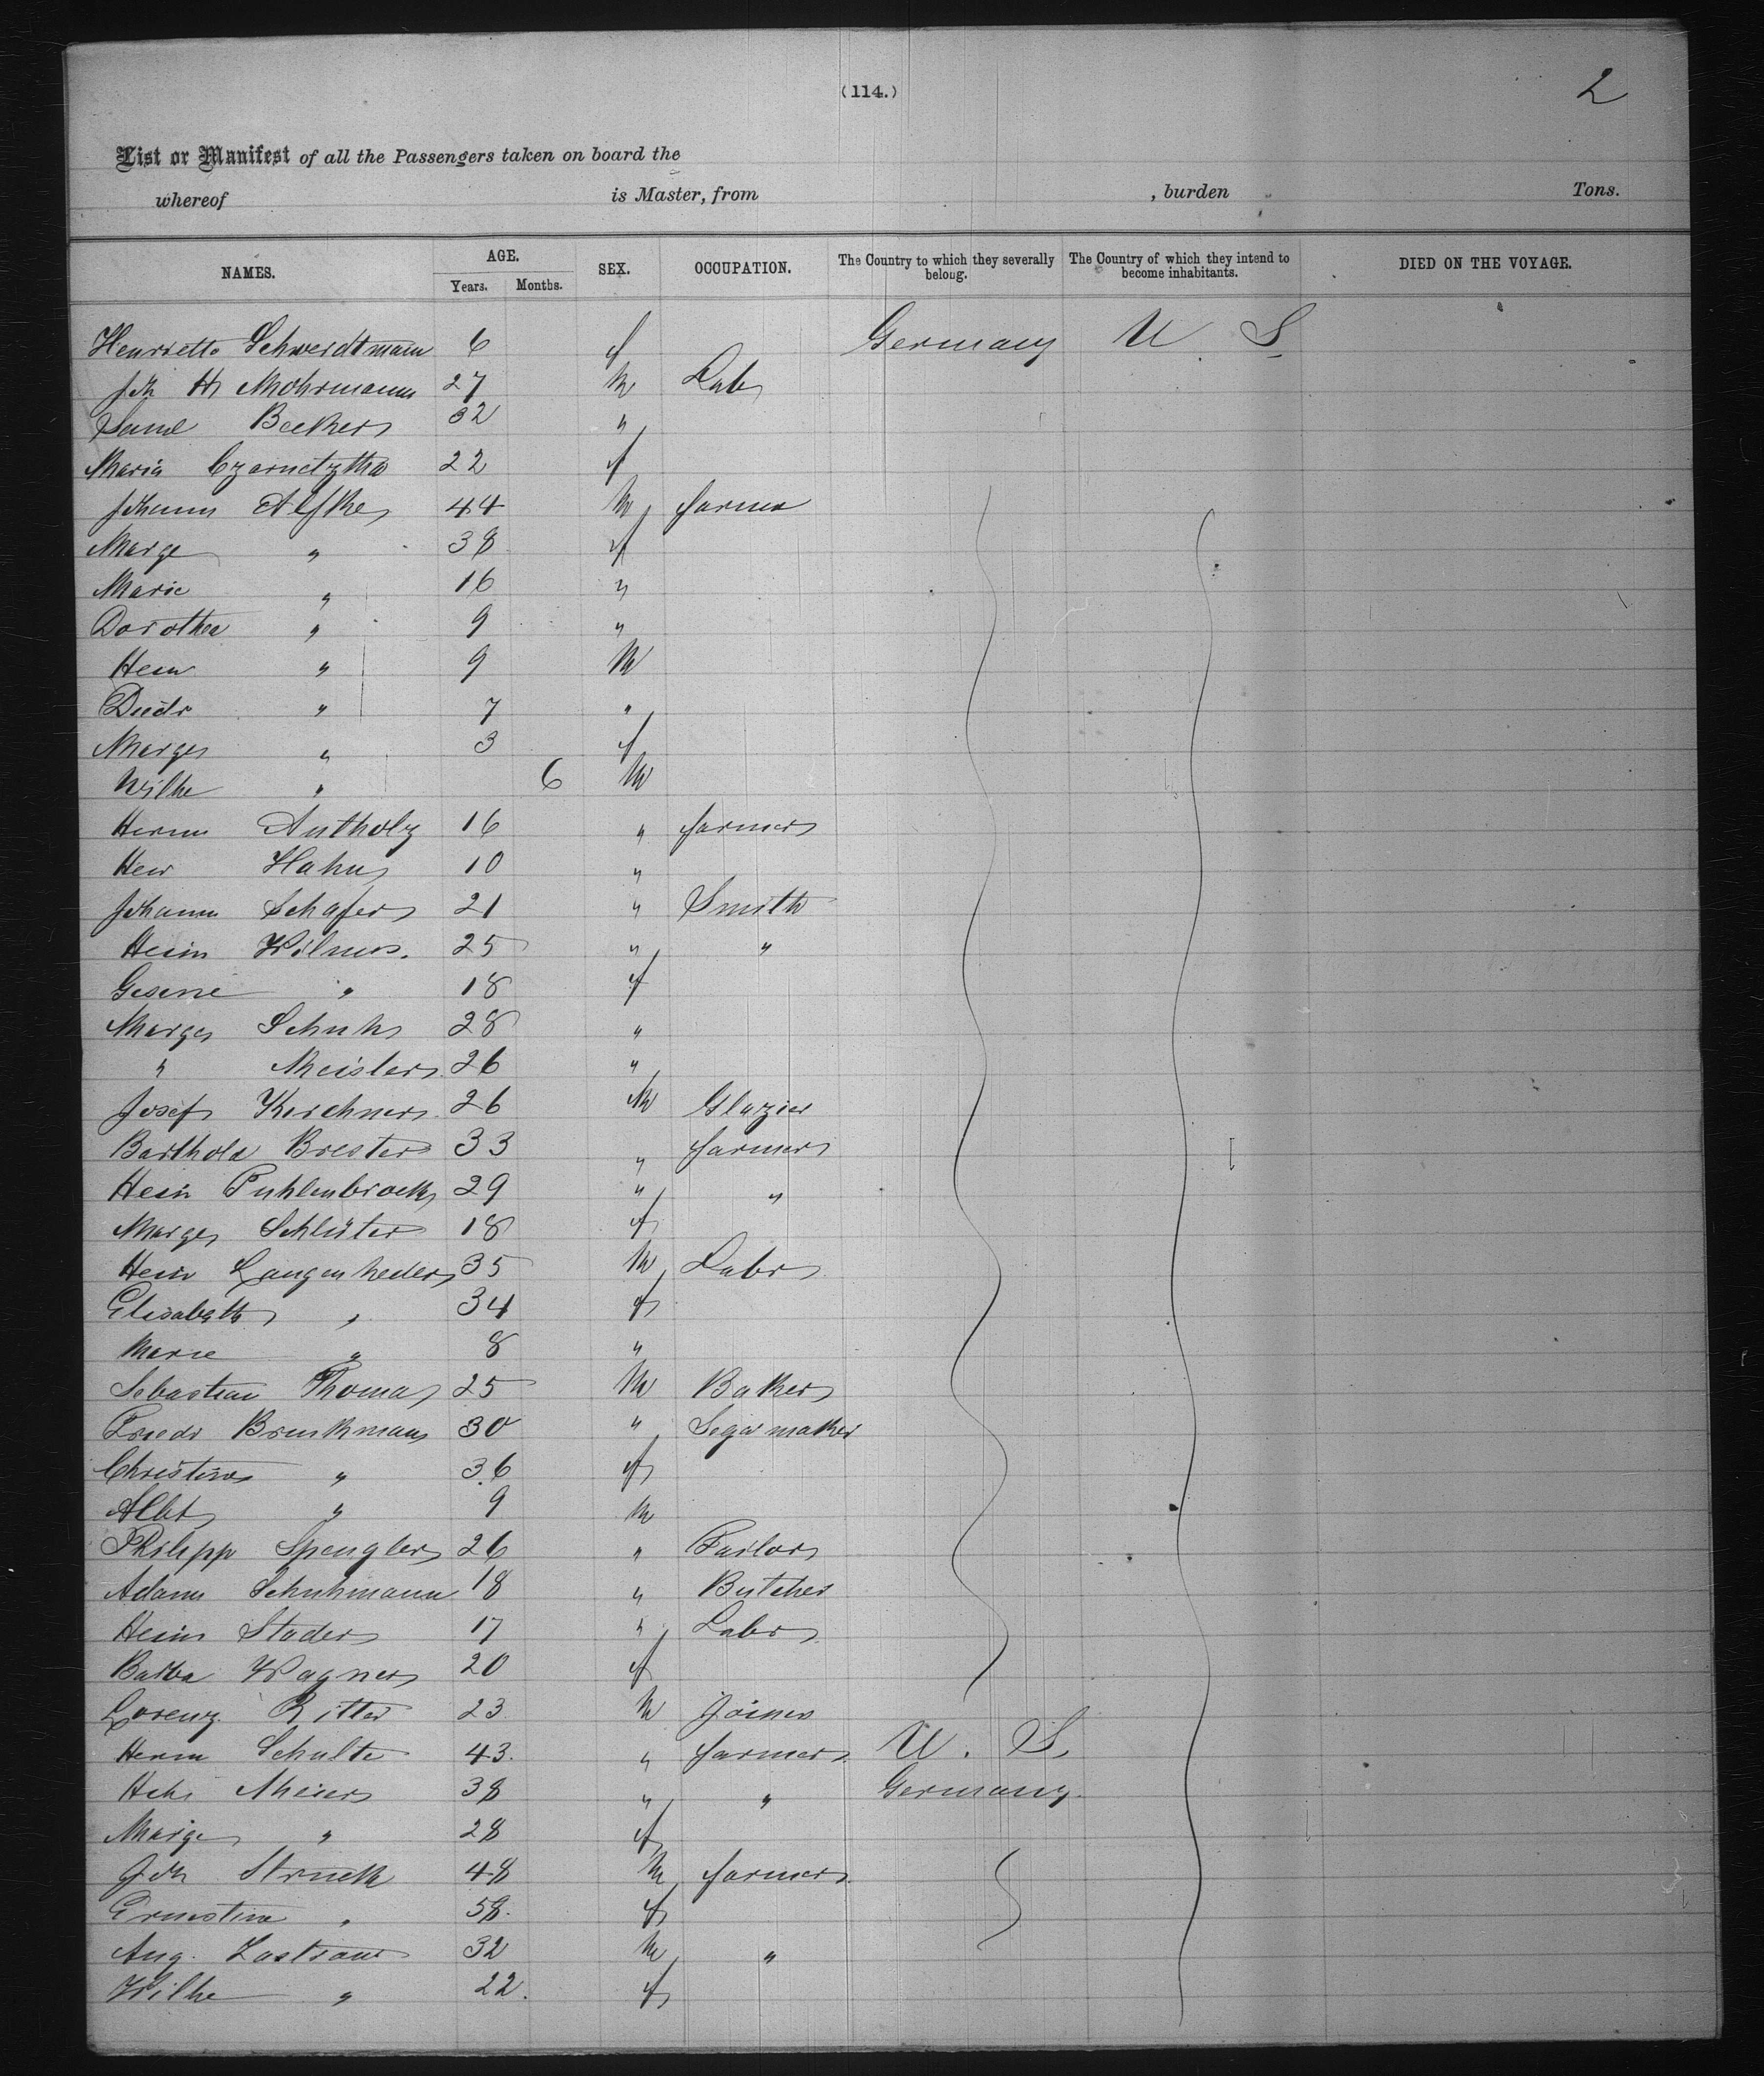 (114.)
2
List or Manifest of all the Passengers taken on board the
whereof is Master, from , burden Tons.
NAMES. AGE. SEX. OCCUPATION. The Country to which they severally belong. The Country of which they intend to become inhabitants. DIED ON THE VOYAGE.
Years. Months.
Henriette Schweidtmann 6 f Germany U S
Joh H Mohrmann 27 M Labr
Saml Becker 32 "
Maria 22 f
Johann Alfke 44 M farmer
Marge " 38 f
Marie " 16 "
Dorothea " 9 "
Hein " 9 M
Diedr " 7 "
Marge " 3 f
Wilhe " 6 M
Herm Antholz 16 " farmer
Hein Hahn 10 "
Johann Schafer 21 " Smith
Hein Wilmes. 25 " "
Gesine " 18 f
Marge Schuh 28 "
" Meisler 26 "
Josef Kirchner 26 M Glazier
Barthold Brester 33 " farmer
Hein Puhlenbrock 29 " "
Marge Schlüter 18 f
Hein Langenheder 35 M Labr
Elisabeth " 34 f
Marie " 8 "
Sebastian Thoma 25 M Baker
Friedr Brinkmann 30 " Segarmaker
Christine " 36 f
Albt " 9 M
Philipp Spengler 26 " Tailor
Adam Schuhmann 18 " Butcher
Hein Stader 17 " Labr
Barba Wagner 20 f
Lorenz Ritter 23 M Joiner
Herm Schulte 43. " farmer U. S.
Meier 38 " " Germany
Marge " 28 f
Joh Struck 48 M farmer
Ernestine " 58. f
Aug. Zastrow 32 M "
Wilhe " 22. f